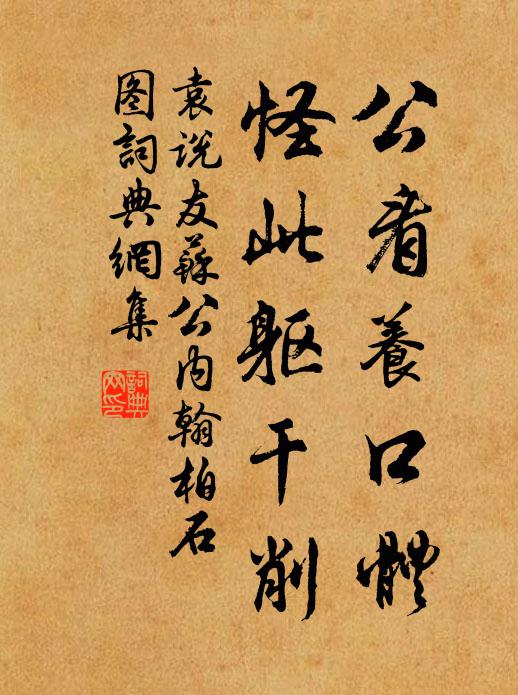 公看養口體
怪此軀干削
袁说友蘇公内翰柏石
图詞典網集
詞典
网印